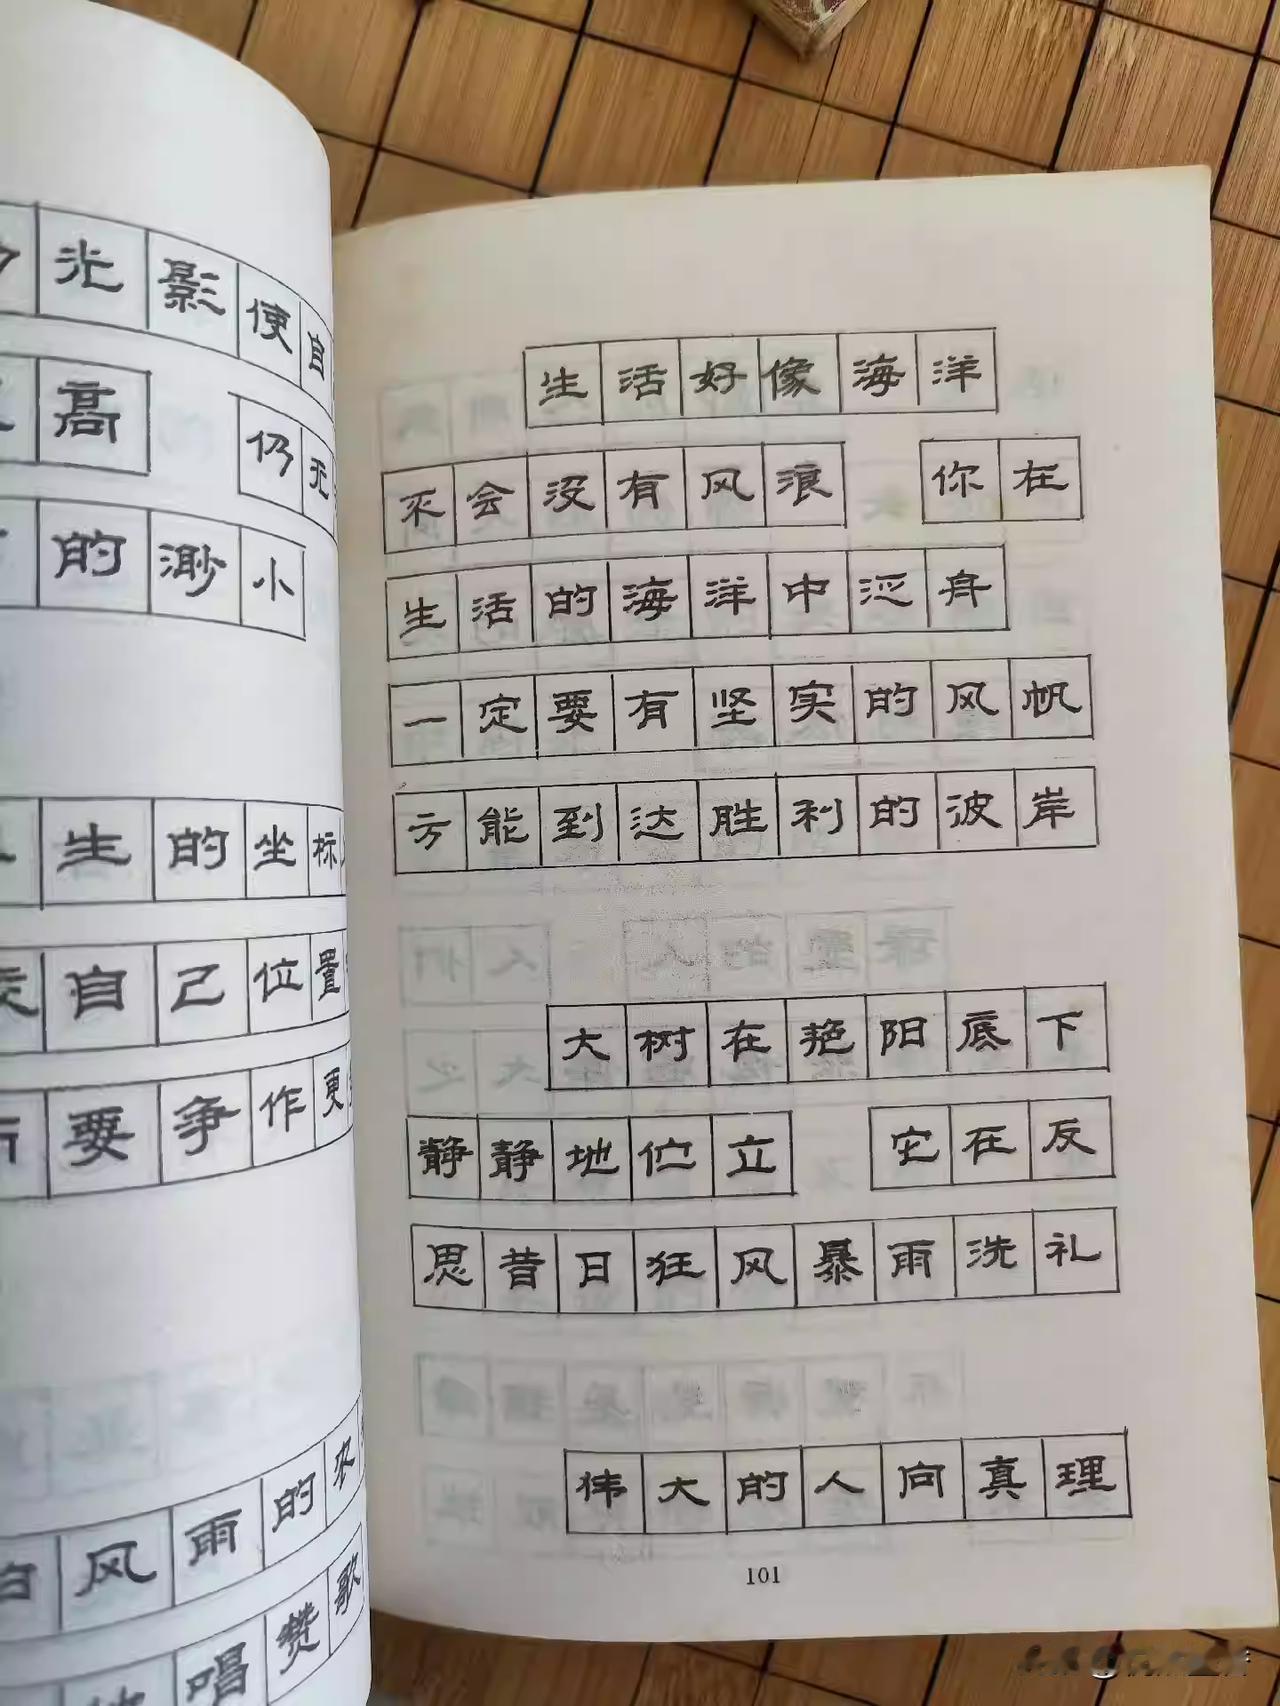 光影使自
高 仍无
的渺小
生的坐标
自己位置
要争作更
风雨的不
唱赞歌
生活好像海洋
不会没有风浪 你在
生活的海洋中泛舟
一定要有坚实的风帆
方能到达胜利的彼岸
大树在艳阳底下
静静地伫立 它在反
思昔日狂风暴雨洗礼
伟大的人向真理
101